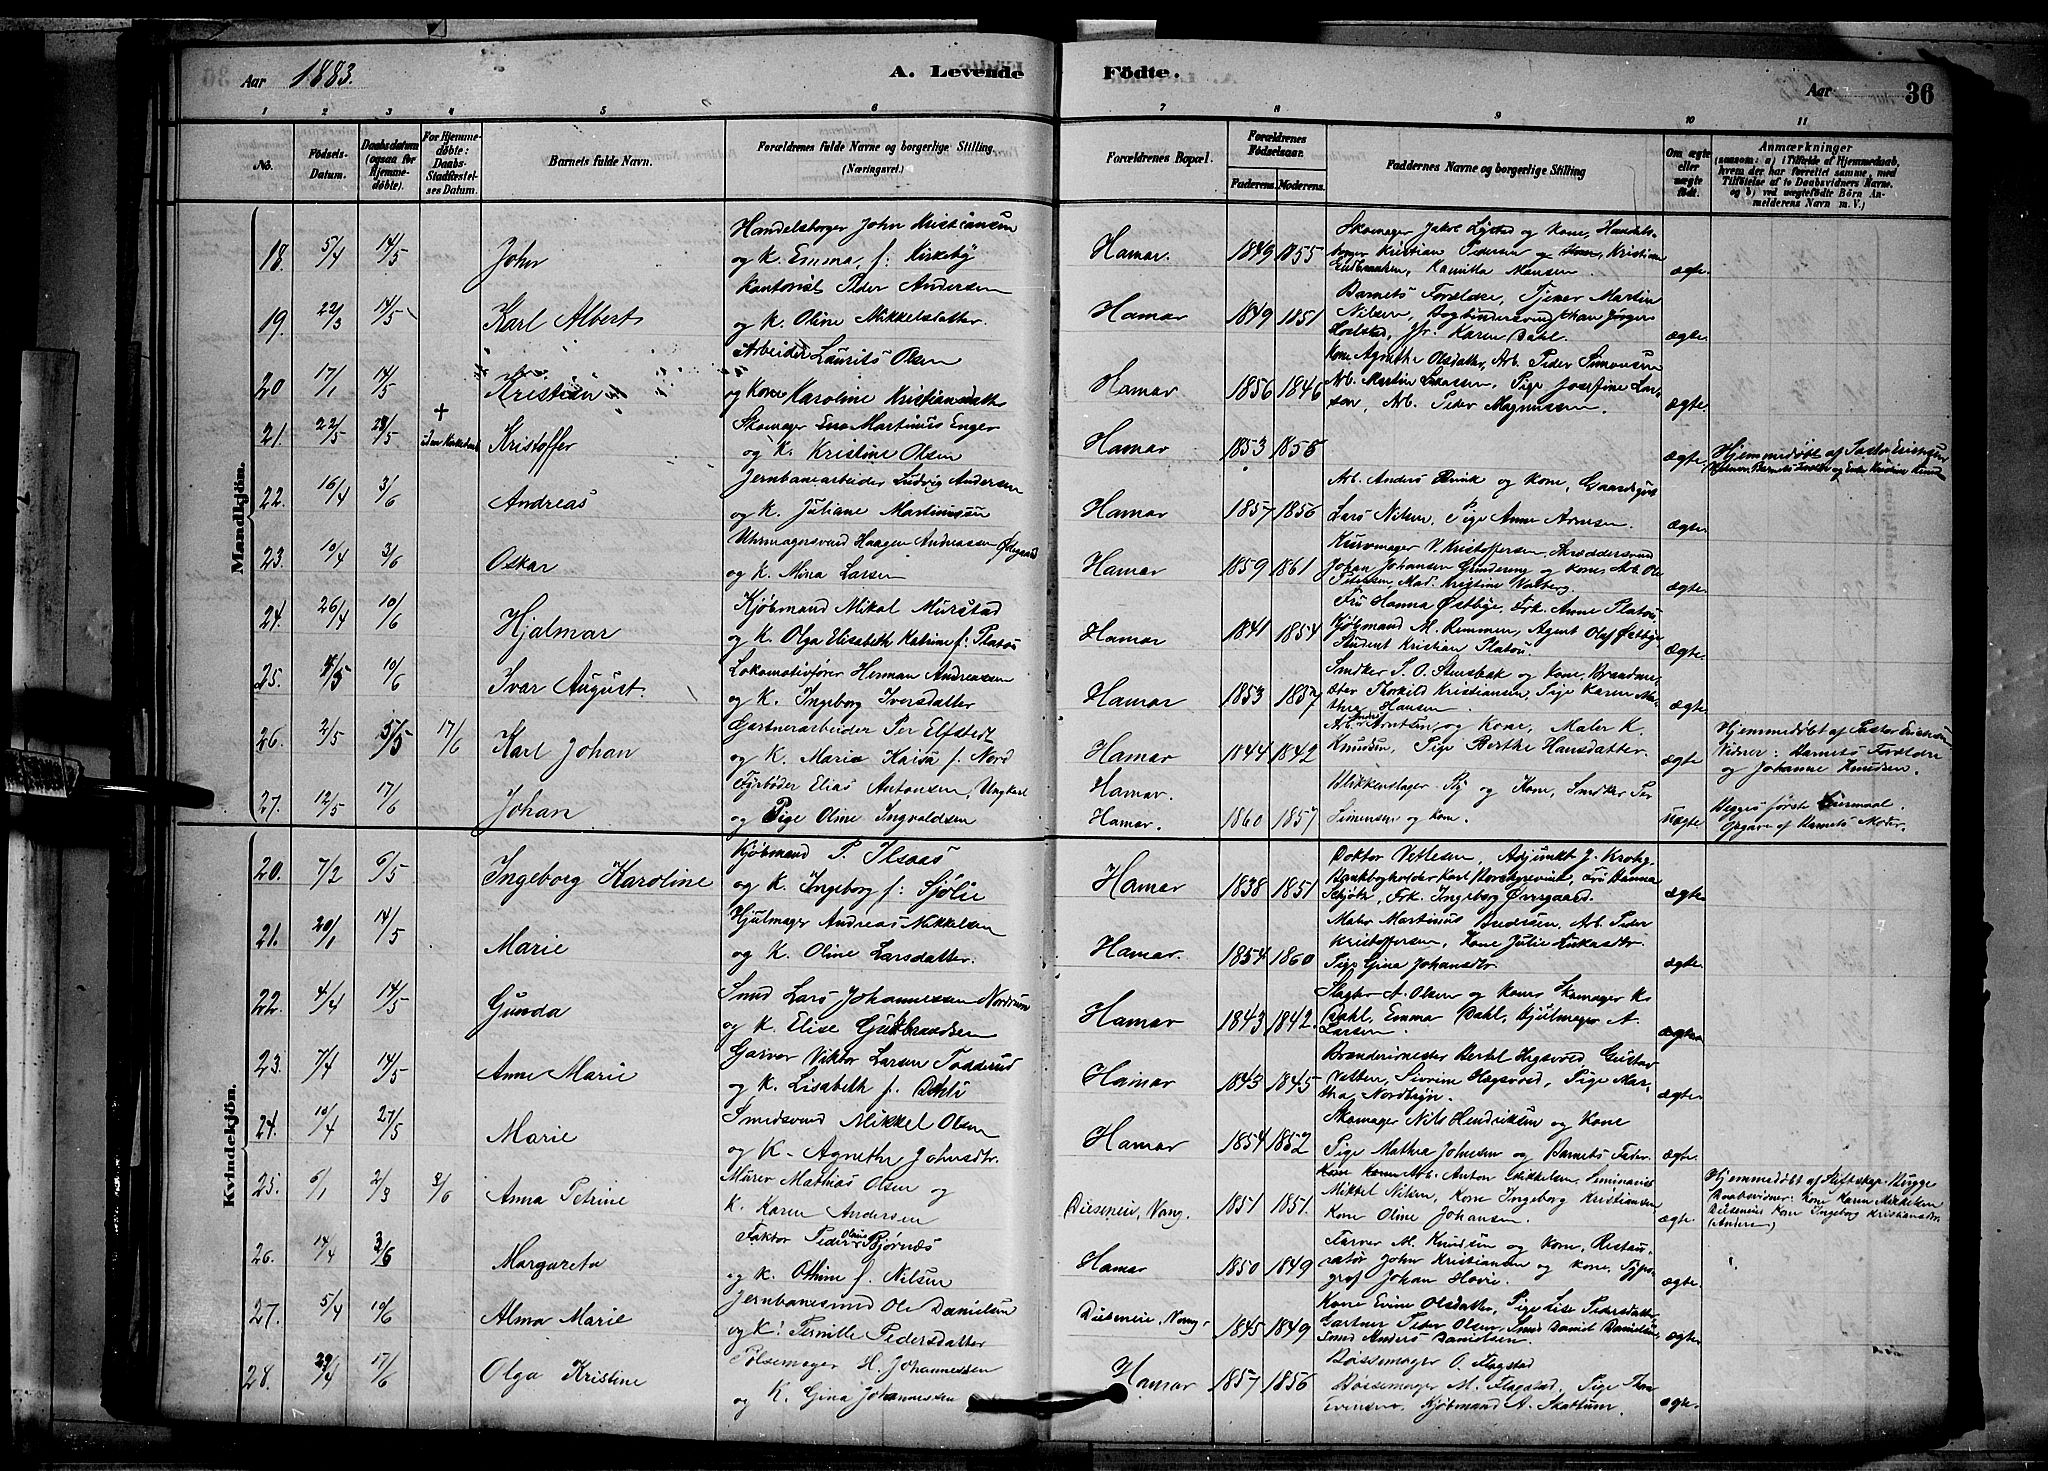 Aar 1883.
A. Levende Fødte.
Aar
36
1 2 3 4 5 6 7 8 9 10 11
No.
Fødsels-Datum.
Daabsdatum (ogsaa for Hjemmedøbte).
For Hjemmedøbte: Daabs-Stadfæstelses Datum.
Barnets fulde Navn.
Forældrenes fulde Navne og borgerlige Stilling (Næringsvei.)
Forældrenes Bopæl.
Forældrenes Fødselsaar.
Faderens. Moderens.
Faddernes Navne og borgerlige Stilling
Om ægte eller uægte født.
Anmærkninger
(saasom: a) i Tilfælde af Hjemmedaab, hvem der har forrettet samme, med Tilføielse af to Daabsvidners Navne, og b) ved uægtefødte Børn Anmelderens Navn m. V.)
Mandkjøn.
18. 5/4 14/5 John
Handelsborger John Kristiansen
og K. Emma f: Kirkeby
Hamar. 1849 1855
Skomager Jakob Lystad og Kone, Handels-
borger Kristian Pedersen og Kristian
Kamilla Hansen.
ægte.
19. 22/3 14/5 Karl Albert
Kantorist Peder Andersen
og K. Oline Mikkelsdatter.
Hamar 1849 1851
Barnets Forældre, Tjener Martin
Nilsen, Bogbindersvend Johan Jørgen
Jfr. Karen Dahl.
ægte.
20 17/1 14/5 Kristian
Arbeider Laurits Olsen
og Kone Karoline Kristiansdatter
Hamar 1856 1846
Kone Agnethe Olsdatter, Arb. Peder Simonsen
Arb. Martin Larsen, Pige Josefine Lar-
sen, Arb. Peder Magnussen.
ægte.
21. 22/5 28/5 + Kristoffer
Skomager Martinus Enger
og K. Kristine Olsen
Hamar 1853 1858
ægte.
Hjemmedøbt af Pastor Erichsen
22. 16/4 3/6 Andreas
Jernbanearbeider Ludvig Andersen
og K. Juliane Martinsen
Hamar 1857 1856
Arb. Anders og Kone,
Lars Nilsen, Pige Anne Arnesen.
ægte.
23. 10/4 3/6 Oskar
Uhrmagersvend Haagen Andreassen Ødegaard
og K. Mina Larsen
Hamar 1859 1861
Kurvmager V. Kristoffersen, Skræddersvend
Johan Johansen Grindering og Kone, Arb. Ole
Petersen, Mad. Kristine Norberg
ægte.
24. 26/4 10/6 Hjalmar
Kjøbmand Mikal Murstad
og K. Olga Elisabeth Katrine f: Platou
Hamar 1841 1854
Fru Hanna Østbye, Frk. Anne Platou
Kjøbmand M. Remmen, Agent Olaf Østbye,
Student Kristian Platou.
ægte.
25. 4/5 10/6 Ivar August
Lokomotivfører Herman Andreassen
og K. Ingeborg Iversdatter
Hamar 1853 1857
Snedker S. O. Stensbak og Kone, Brandme-
ster Thorkild Kristiansen, Pige Karen Ma-
thea Hansen.
ægte.
26. 2/5 5/5 17/6 Karl Johan
Gartnerarbeider Per Elfstedt
og K. Maria Kaisa f. Nord
Hamar 1844 1842
Arb. Arntsen og Kone, Maler K.
Knudsen, Pige Berthe Hansdatter.
ægte
Hjemmedøbt af Pastor Erichsen
Vidner: Barnets Forældre
og Johanne Knudsen.
27. 12/5 17/6 Johan
Fyrbøder Elias Antonsen, Ungkarl
og Pige Oline Ingvaldsen
Hamar.
Hamar. 1860 1857
Blikkenslager Ry og Kone, Snedker Per
Simensen og Kone.
uægte
Begges første Leiermaal.
Opgave af Barnets Moder.
Kvindekjøn.
20. 7/2 6/5 Ingeborg Karoline
Kjøbmand P. Ilsaas
og K. Ingeborg f: Sjølie
Hamar 1838 1851
Doktor Vetlesen, Adjunkt J. Krohg,
Bankbogholder Karl Fru Hanna
Schjøth, Frk. Ingeborg Øvergaard.
ægte.
21. 20/1 14/5 Marie
Hjulmager Andreas Mikkelsen
og K. Oline Larsdatter.
Hamar. 1854 1860
Maler Martinus Andersen, Arb. Peder
Kristoffersen, Kone Julie Lukasdtr.
Pige Gina Johansdtr.
ægte.
22. 4/4 14/5 Gunda
Smed Lars Johannessen Nordrum
og K. Elise Gulbrandsen
Hamar 1843 1842.
Slagter A. Olsen og Kone, Skomager K.
Dahl, Emma Dahl, Hjulmager A.
Larsen.
ægte
23. 7/4 14/5 Anne Marie
Garver Viktor Larsen Todderud
og K. Lisabeth f. Dahli
Hamar 1843 1845
Branderimester Bertel Hegsvold, Gustav
Sivrine Hegsvold, Pige Mar-
tha Nordbyn.
ægte.
24. 10/4 27/5 Marie
Smedsvend Mikkel Olsen
og K. Agnethe Johnsdtr.
Hamar 1854 1852
Skomager Nils Hendriksen og Kone
Pige Mathea Johnsen og Barnets Fader.
ægte.
25. 6/1 2/3 3/6 Anna Petrine
Murer Mathias Olsen og
K. Karen Andersen
Disenmin, Vang. 1851 1851.
Arb. Anton Mikkelsen, Seminarist
Mikkel Nilsen, Kone Ingeborg Kristiansen
Kone Oline Johansen.
ægte.
Hjemmedøbt af Stiftskap. Rygge
Daabsvidner: Kone Karen Mikkelsen
Kone Ingeborg Kristiansdtr.
26. 14/4 3/6 Margareta
Faktor Peder Olaus Bjørnæs
og K. Othine f. Nilsen
Hamar 1850 1849
Farver M. Knudsen og Kone, Restau-
ratør John Kristiansen og Kone, Typo-
graf Johan Hovie.
ægte
27. 5/4 10/6 Alma Marie
Jernbanesmed Ole Danielsen
og K. Pernille Pedersdatter
Disenmin, Vang. 1845 1849
Kone Evine Olsdatter, Pige Lise Pedersdatter,
Gartner Peder Olsen, Smed Daniel Danielsen,
Smed Anders Danielsen.
ægte.
28. 29/4 17/6 Olga Kristine
Pølsemager H. Johannessen
og K. Gina Johannessen
Hamar 1857 1856
Bøssemager O. Flagstad
Bøssemager M. Flagstad, Pige Thea
Evensen, Kjøbmand A. Skattum.
ægte.